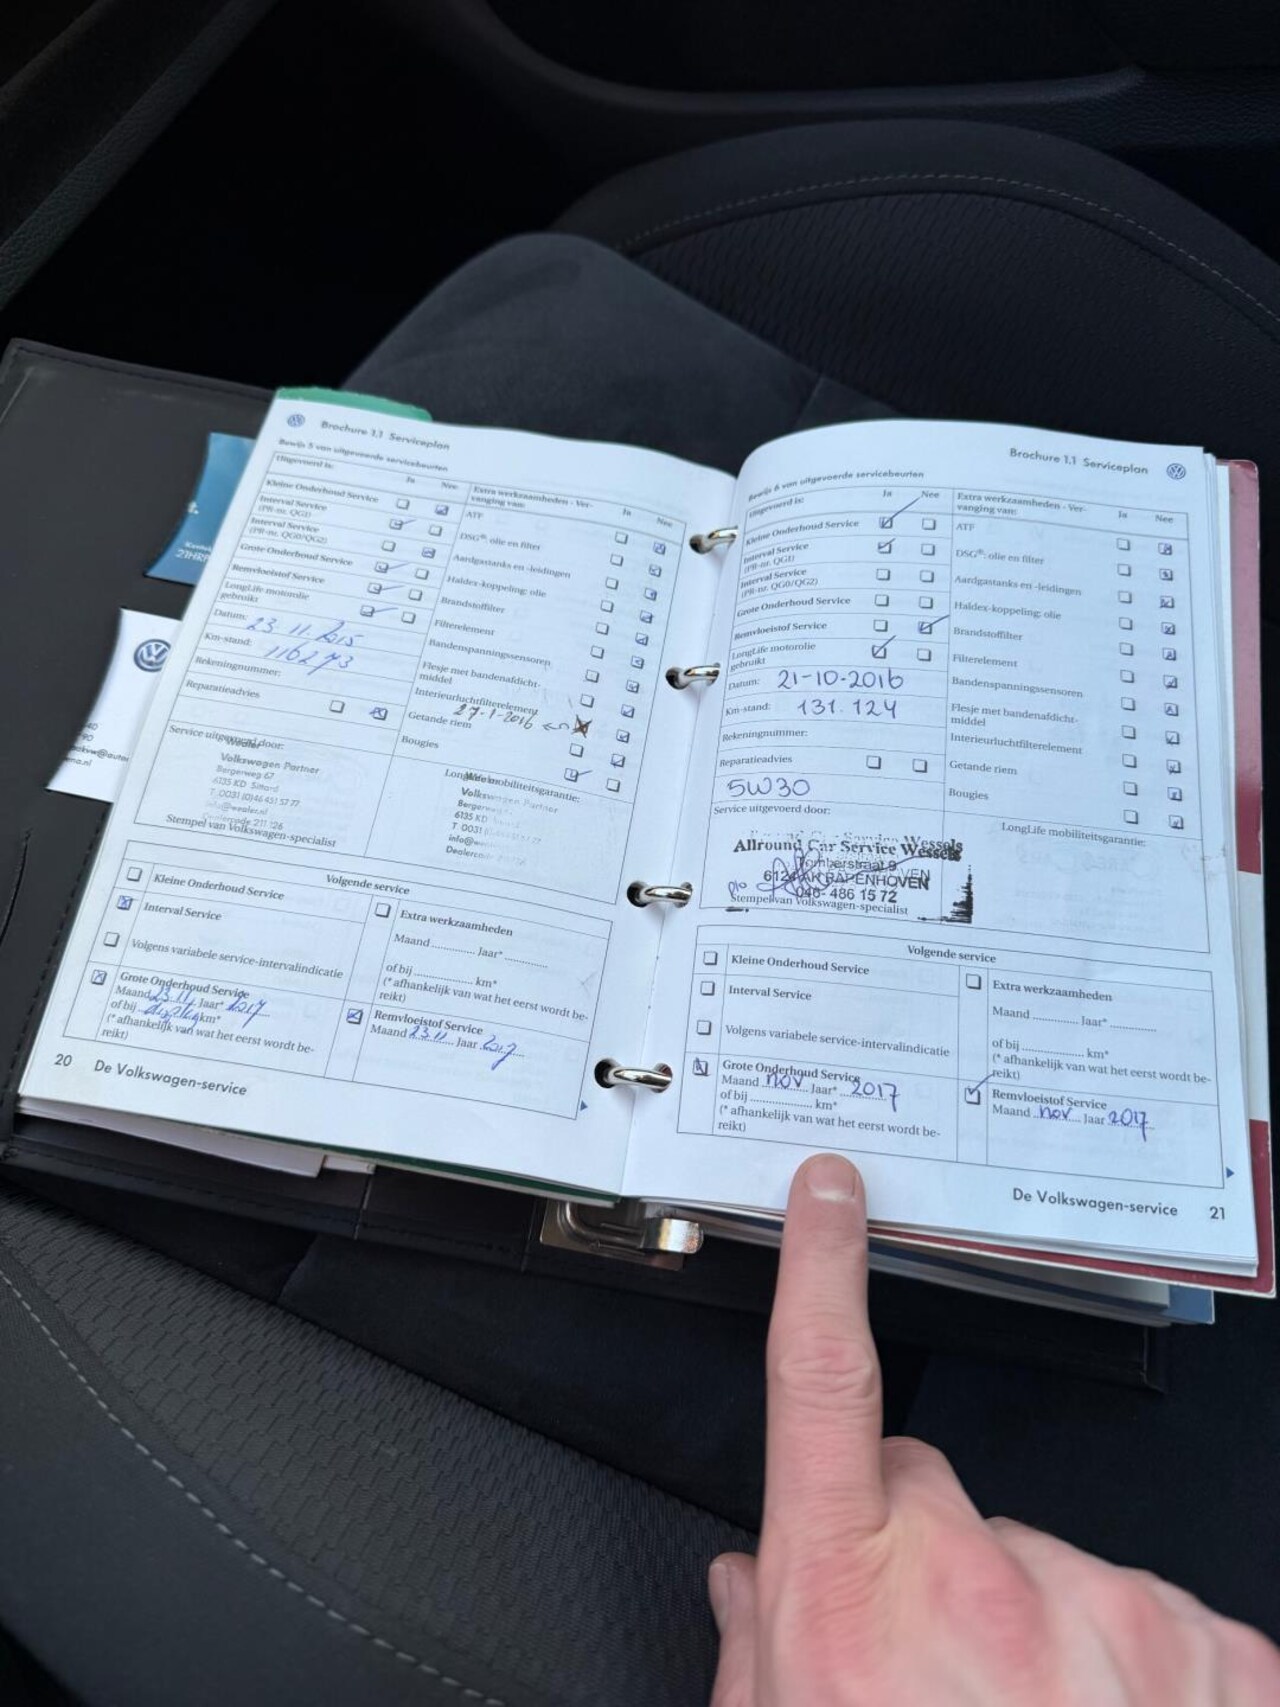 Brochure 1.1 Serviceplan
Bewijs 5 van uitgevoerde servicebeurten
Uitgevoerd is:
Ja Nee
Kleine Onderhoud Service
Interval Service
(PR-nr. QG1)
Interval Service
(PR-nr. QG0/QG2)
Grote Onderhoud Service
Remvloeistof Service
LongLife motorolie
gebruikt
Datum: 23.11.2015
Km-stand: 116273
Rekeningnummer:
Reparatieadvies
Service uitgevoerd door:
Volkswagen Partner
Bergerweg 67
6135 KD Sittard
T. 0031 (0)46 451 57 77
Stempel van Volkswagen-specialist
Extra werkzaamheden - Ver-
vanging van:
Ja Nee
ATF
DSG®: olie en filter
Aardgastanks en -leidingen
Haldex-koppeling: olie
Brandstoffilter
Filterelement
Bandenspanningssensoren
Flesje met bandenafdicht-
middel
Interieurluchtfilterelement
27-1-2016
Getande riem
Bougies
LongLife mobiliteitsgarantie:
Volkswagen Partner
6135 KD
T 0031
Volgende service
Kleine Onderhoud Service
Interval Service
Volgens variabele service-intervalindicatie
Grote Onderhoud Service
Maand 23.11 Jaar* 2017
of bij display km*
(* afhankelijk van wat het eerst wordt be-
reikt)
Extra werkzaamheden
Maand .............. Jaar* ..............
of bij .................... km*
(* afhankelijk van wat het eerst wordt be-
reikt)
Remvloeistof Service
Maand 23.11 Jaar 2017
20 De Volkswagen-service
Brochure 1.1 Serviceplan
Bewijs 6 van uitgevoerde servicebeurten
Uitgevoerd is:
Ja Nee
Kleine Onderhoud Service
Interval Service
(PR-nr. QG1)
Interval Service
(PR-nr. QG0/QG2)
Grote Onderhoud Service
Remvloeistof Service
LongLife motorolie
gebruikt
Datum: 21-10-2016
Km-stand: 131.124
Rekeningnummer:
Reparatieadvies
5W30
Service uitgevoerd door:
Allround Car Service Wessels
Tomberstraat 9
6124 AK PAPENHOVEN
046- 486 15 72
p/o
Stempel van Volkswagen-specialist
Extra werkzaamheden - Ver-
vanging van:
Ja Nee
ATF
DSG®: olie en filter
Aardgastanks en -leidingen
Haldex-koppeling: olie
Brandstoffilter
Filterelement
Bandenspanningssensoren
Flesje met bandenafdicht-
middel
Interieurluchtfilterelement
Getande riem
Bougies
LongLife mobiliteitsgarantie:
Volgende service
Kleine Onderhoud Service
Interval Service
Volgens variabele service-intervalindicatie
Grote Onderhoud Service
Maand nov Jaar* 2017
of bij .................... km*
(* afhankelijk van wat het eerst wordt be-
reikt)
Extra werkzaamheden
Maand .............. Jaar* ..............
of bij .................... km*
(* afhankelijk van wat het eerst wordt be-
reikt)
Remvloeistof Service
Maand nov Jaar 2017
De Volkswagen-service 21